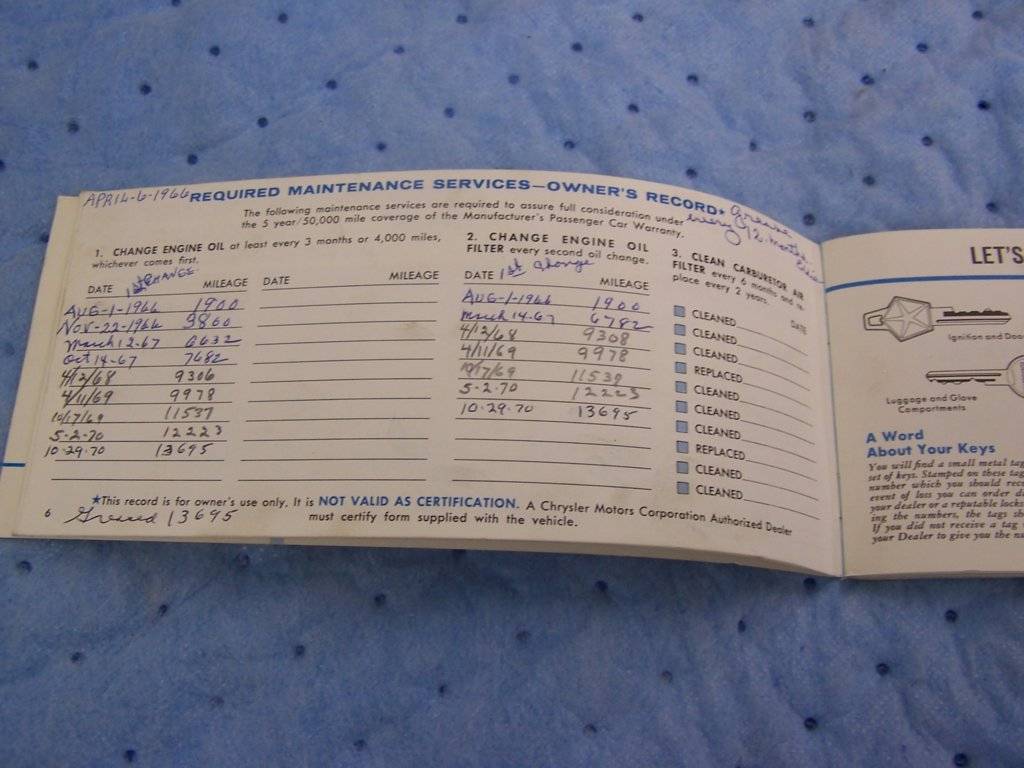 APRIL-6-1966 REQUIRED MAINTENANCE SERVICES—OWNER'S RECORD★
Grease every 12-months
The following maintenance services are required to assure full consideration under
the 5 year/50,000 mile coverage of the Manufacturer's Passenger Car Warranty.
1. CHANGE ENGINE OIL at least every 3 months or 4,000 miles,
whichever comes first.
1st CHANGE
DATE MILEAGE DATE MILEAGE
AUG-1-1966 1900
NOV-22-1966 3860
March 12-67 6632
Oct 14-67 7682
4/12/68 9306
4/11/69 9978
10/17/69 11537
5-2-70 12223
10-29-70 13695
2. CHANGE ENGINE OIL
FILTER every second oil change.
1st Change
DATE MILEAGE
AUG-1-1966 1900
March 14-67 6782
4/12/68 9308
4/11/69 9978
10/17/69 11539
5-2-70 12223
10-29-70 13695
3. CLEAN CARBURETOR AIR
FILTER every 6 months and re-
place every 2 years.
DATE
CLEANED
CLEANED
CLEANED
REPLACED
CLEANED
CLEANED
CLEANED
REPLACED
CLEANED
CLEANED
★This record is for owner's use only. It is NOT VALID AS CERTIFICATION. A Chrysler Motors Corporation Authorized Dealer
must certify form supplied with the vehicle.
6 Greased 13695
LET'S
Ignition and Doo
Luggage and Glove
Compartments
A Word
About Your Keys
You will find a small metal tag
set of keys. Stamped on these tag
number which you should reco
event of loss you can order du
your dealer or a reputable locks
ing the numbers, the tags sh
If you did not receive a tag
your Dealer to give you the nu